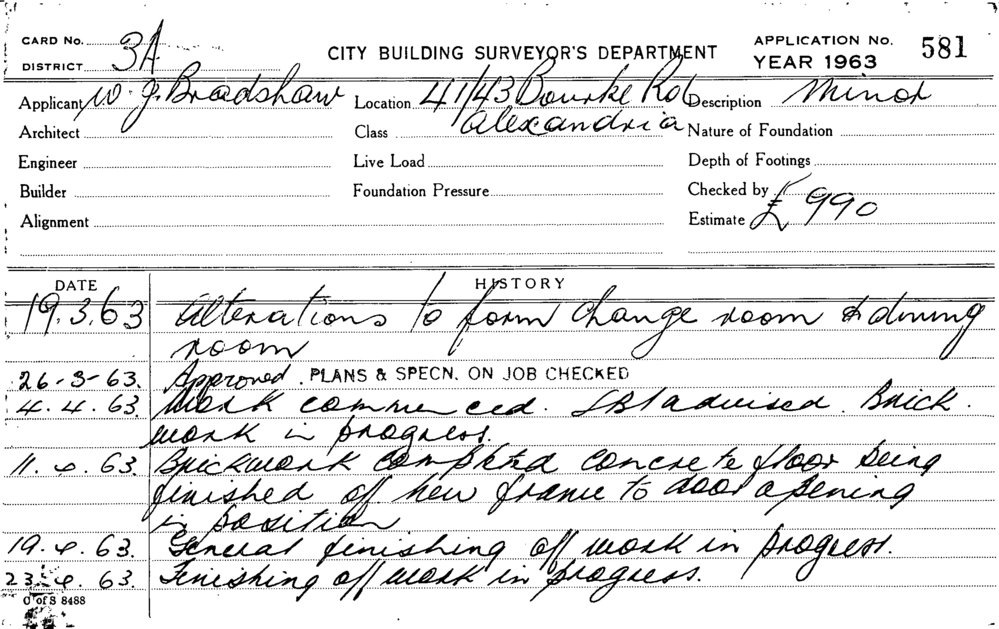 CARD No. 3A
DISTRICT
CITY BUILDING SURVEYOR'S DEPARTMENT
APPLICATION No. 581
YEAR 1963
Applicant W. J. Bradshaw
Location 41/43 Bourke Rd
Alexandria
Description Minor
Architect
Class
Nature of Foundation
Engineer
Live Load
Depth of Footings
Builder
Foundation Pressure
Checked by
Alignment
Estimate £990
DATE HISTORY
19.3.63 Alterations to form change room & dining
room
26-3-63. Approved. PLANS & SPECN. ON JOB CHECKED
4.4.63. Work commenced. advised. Brick
work in progress.
11.4.63. Brickwork completed concrete floor being
finished off new frame to door opening
in position
19.4.63. General finishing off work in progress.
23.4.63. Finishing off work in progress.
C of S 8488